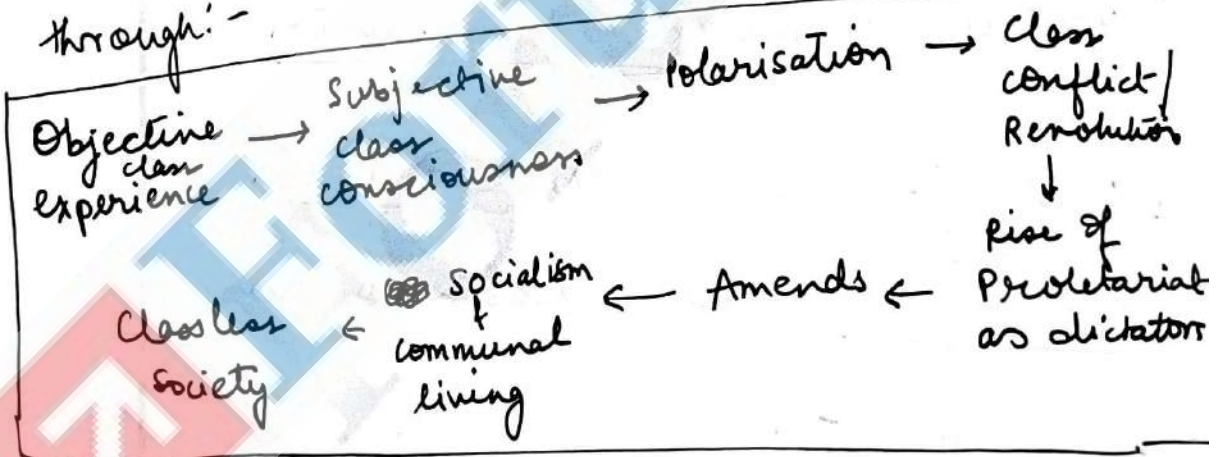 through:-
Objective class experience → Subjective class consciousness → Polarisation → Class conflict/ Revolution
↓
Rise of Proletariat as dictators
← Amends
← Socialism & communal living
← Classless society